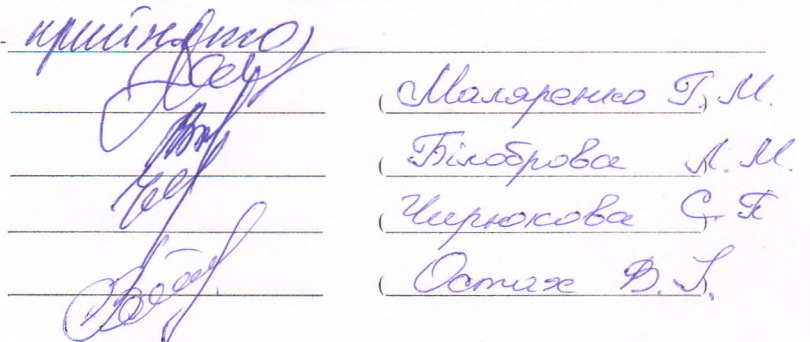 - прийнято
( Маляренко Г. М. )
( Білоброва Л. М. )
( Чирюкова С. П )
( Остах В. І. )